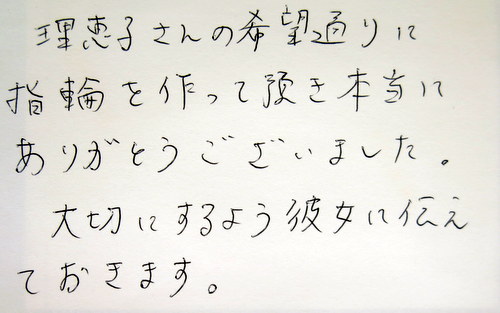 理恵子さんの希望通りに
指輪を作って頂き本当に
ありがとうございました。
大切にするよう彼女に伝え
ておきます。